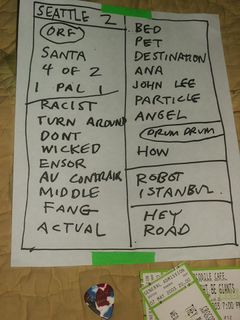 SEATTLE 2
ORF
SANTA
4 OF 2
1 PAL 1
RACIST
TURN AROUND
DONT
WICKED
ENSOR
AU CONTRAIR
MIDDLE
FANG
ACTUAL
BED
PET
DESTINATION
ANA
JOHN LEE
PARTICLE
ANGEL
DRUM DRUM
HOW
ROBOT
ISTANBUL
HEY
ROAD
GENERAL ADMISSION
MAY 2003
CAFE
BE GIANTS
2003 7:00 PM